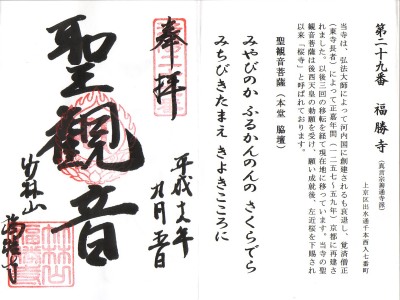 第二十九番　福勝寺（真言宗善通寺派）
上京区出水通千本西入七番町
当寺は、弘法大師によって河内国に創建されるも衰退し、覚済僧正
（東寺長者）によって正嘉年間（一二五七～五九年）京都に再建さ
れました。以後三回の移転を経て現在地に移っています。当寺の聖
観音菩薩は後西天皇の勅願を受け、願い成就後、左近桜を下賜され
以来「桜寺」と呼ばれております。
聖観音菩薩（本堂　脇壇）
みやびのか　ふるかんのんの　さくらでら
みちびきたまえ　きよきこころに
奉拝
平成十八年
九月五日
聖観音
竹林山
福勝寺